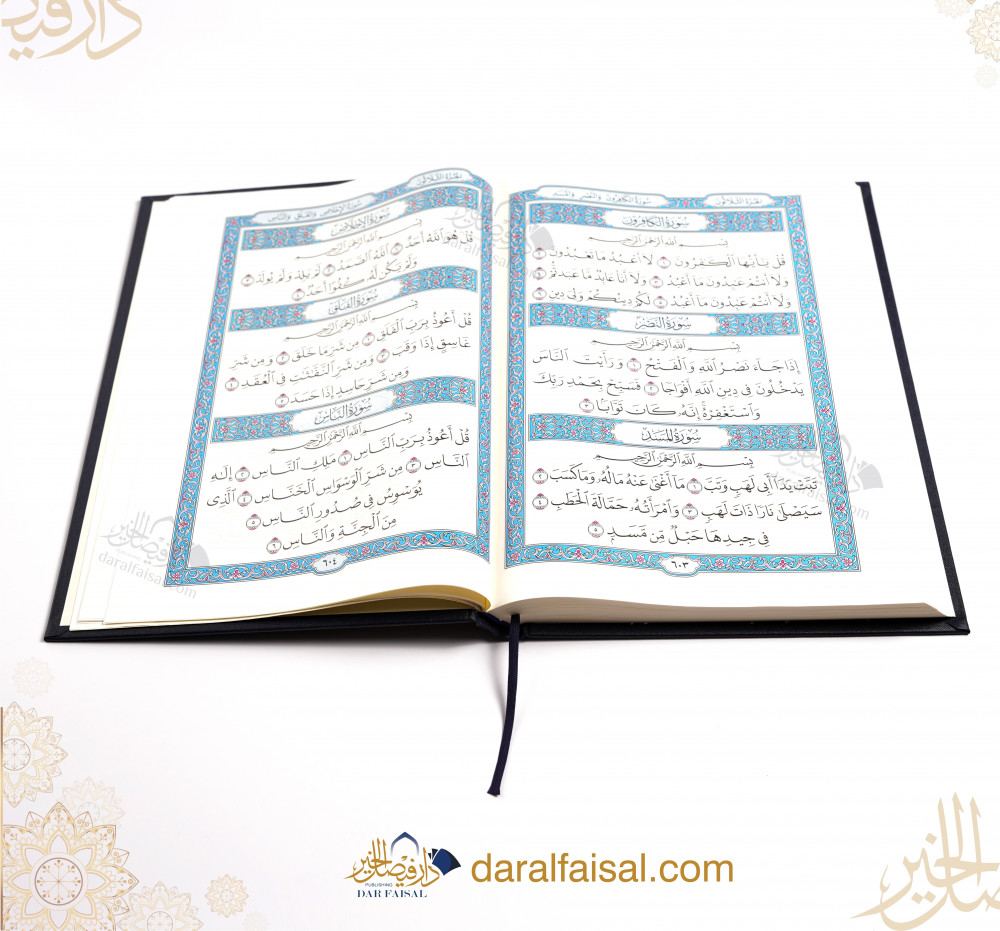 الجزء الثلاثون
سورة الكافرون والنصر والمسد
سُورَةُ الكَافِرُونَ
بِسْمِ ٱللَّهِ ٱلرَّحْمَٰنِ ٱلرَّحِيمِ
قُلْ يَٰٓأَيُّهَا ٱلْكَٰفِرُونَ ١ لَآ أَعْبُدُ مَا تَعْبُدُونَ ٢
وَلَآ أَنتُمْ عَٰبِدُونَ مَآ أَعْبُدُ ٣ وَلَآ أَنَا۠ عَابِدٌ مَّا عَبَدتُّمْ ٤
وَلَآ أَنتُمْ عَٰبِدُونَ مَآ أَعْبُدُ ٥ لَكُمْ دِينُكُمْ وَلِىَ دِينِ ٦
سُورَةُ النَّصْرِ
بِسْمِ ٱللَّهِ ٱلرَّحْمَٰنِ ٱلرَّحِيمِ
إِذَا جَآءَ نَصْرُ ٱللَّهِ وَٱلْفَتْحُ ١ وَرَأَيْتَ ٱلنَّاسَ
يَدْخُلُونَ فِى دِينِ ٱللَّهِ أَفْوَاجًا ٢ فَسَبِّحْ بِحَمْدِ رَبِّكَ
وَٱسْتَغْفِرْهُ إِنَّهُۥ كَانَ تَوَّابًۢا ٣
سُورَةُ المَسَدِ
بِسْمِ ٱللَّهِ ٱلرَّحْمَٰنِ ٱلرَّحِيمِ
تَبَّتْ يَدَآ أَبِى لَهَبٍ وَتَبَّ ١ مَآ أَغْنَىٰ عَنْهُ مَالُهُۥ وَمَا كَسَبَ ٢
سَيَصْلَىٰ نَارًا ذَاتَ لَهَبٍ ٣ وَٱمْرَأَتُهُۥ حَمَّالَةَ ٱلْحَطَبِ ٤
فِى جِيدِهَا حَبْلٌ مِّن مَّسَدٍۭ ٥
٦٠٣
الجزء الثلاثون
سورة الإخلاص والفلق والناس
سُورَةُ الإِخْلَاصِ
بِسْمِ ٱللَّهِ ٱلرَّحْمَٰنِ ٱلرَّحِيمِ
قُلْ هُوَ ٱللَّهُ أَحَدٌ ١ ٱللَّهُ ٱلصَّمَدُ ٢ لَمْ يَلِدْ وَلَمْ يُولَدْ ٣
وَلَمْ يَكُن لَّهُۥ كُفُوًا أَحَدٌۢ ٤
سُورَةُ الفَلَقِ
بِسْمِ ٱللَّهِ ٱلرَّحْمَٰنِ ٱلرَّحِيمِ
قُلْ أَعُوذُ بِرَبِّ ٱلْفَلَقِ ١ مِن شَرِّ مَا خَلَقَ ٢ وَمِن شَرِّ
غَاسِقٍ إِذَا وَقَبَ ٣ وَمِن شَرِّ ٱلنَّفَّٰثَٰتِ فِى ٱلْعُقَدِ ٤
وَمِن شَرِّ حَاسِدٍ إِذَا حَسَدَ ٥
سُورَةُ النَّاسِ
بِسْمِ ٱللَّهِ ٱلرَّحْمَٰنِ ٱلرَّحِيمِ
قُلْ أَعُوذُ بِرَبِّ ٱلنَّاسِ ١ مَلِكِ ٱلنَّاسِ ٢ إِلَٰهِ
ٱلنَّاسِ ٣ مِن شَرِّ ٱلْوَسْوَاسِ ٱلْخَنَّاسِ ٤ ٱلَّذِى
يُوَسْوِسُ فِى صُدُورِ ٱلنَّاسِ ٥
مِنَ ٱلْجِنَّةِ وَٱلنَّاسِ ٦
٦٠٤
daralfaisal.com
دار فيصل الخير
PUBLISHING
DAR FAISAL
daralfaisal.com